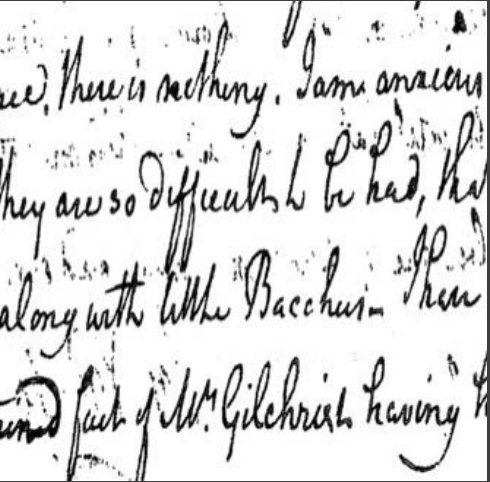 there is nothing. I am anxious
they are so difficult to be had, tha
along with little Bacchus– I have
fact of Mr. Gilchrist having